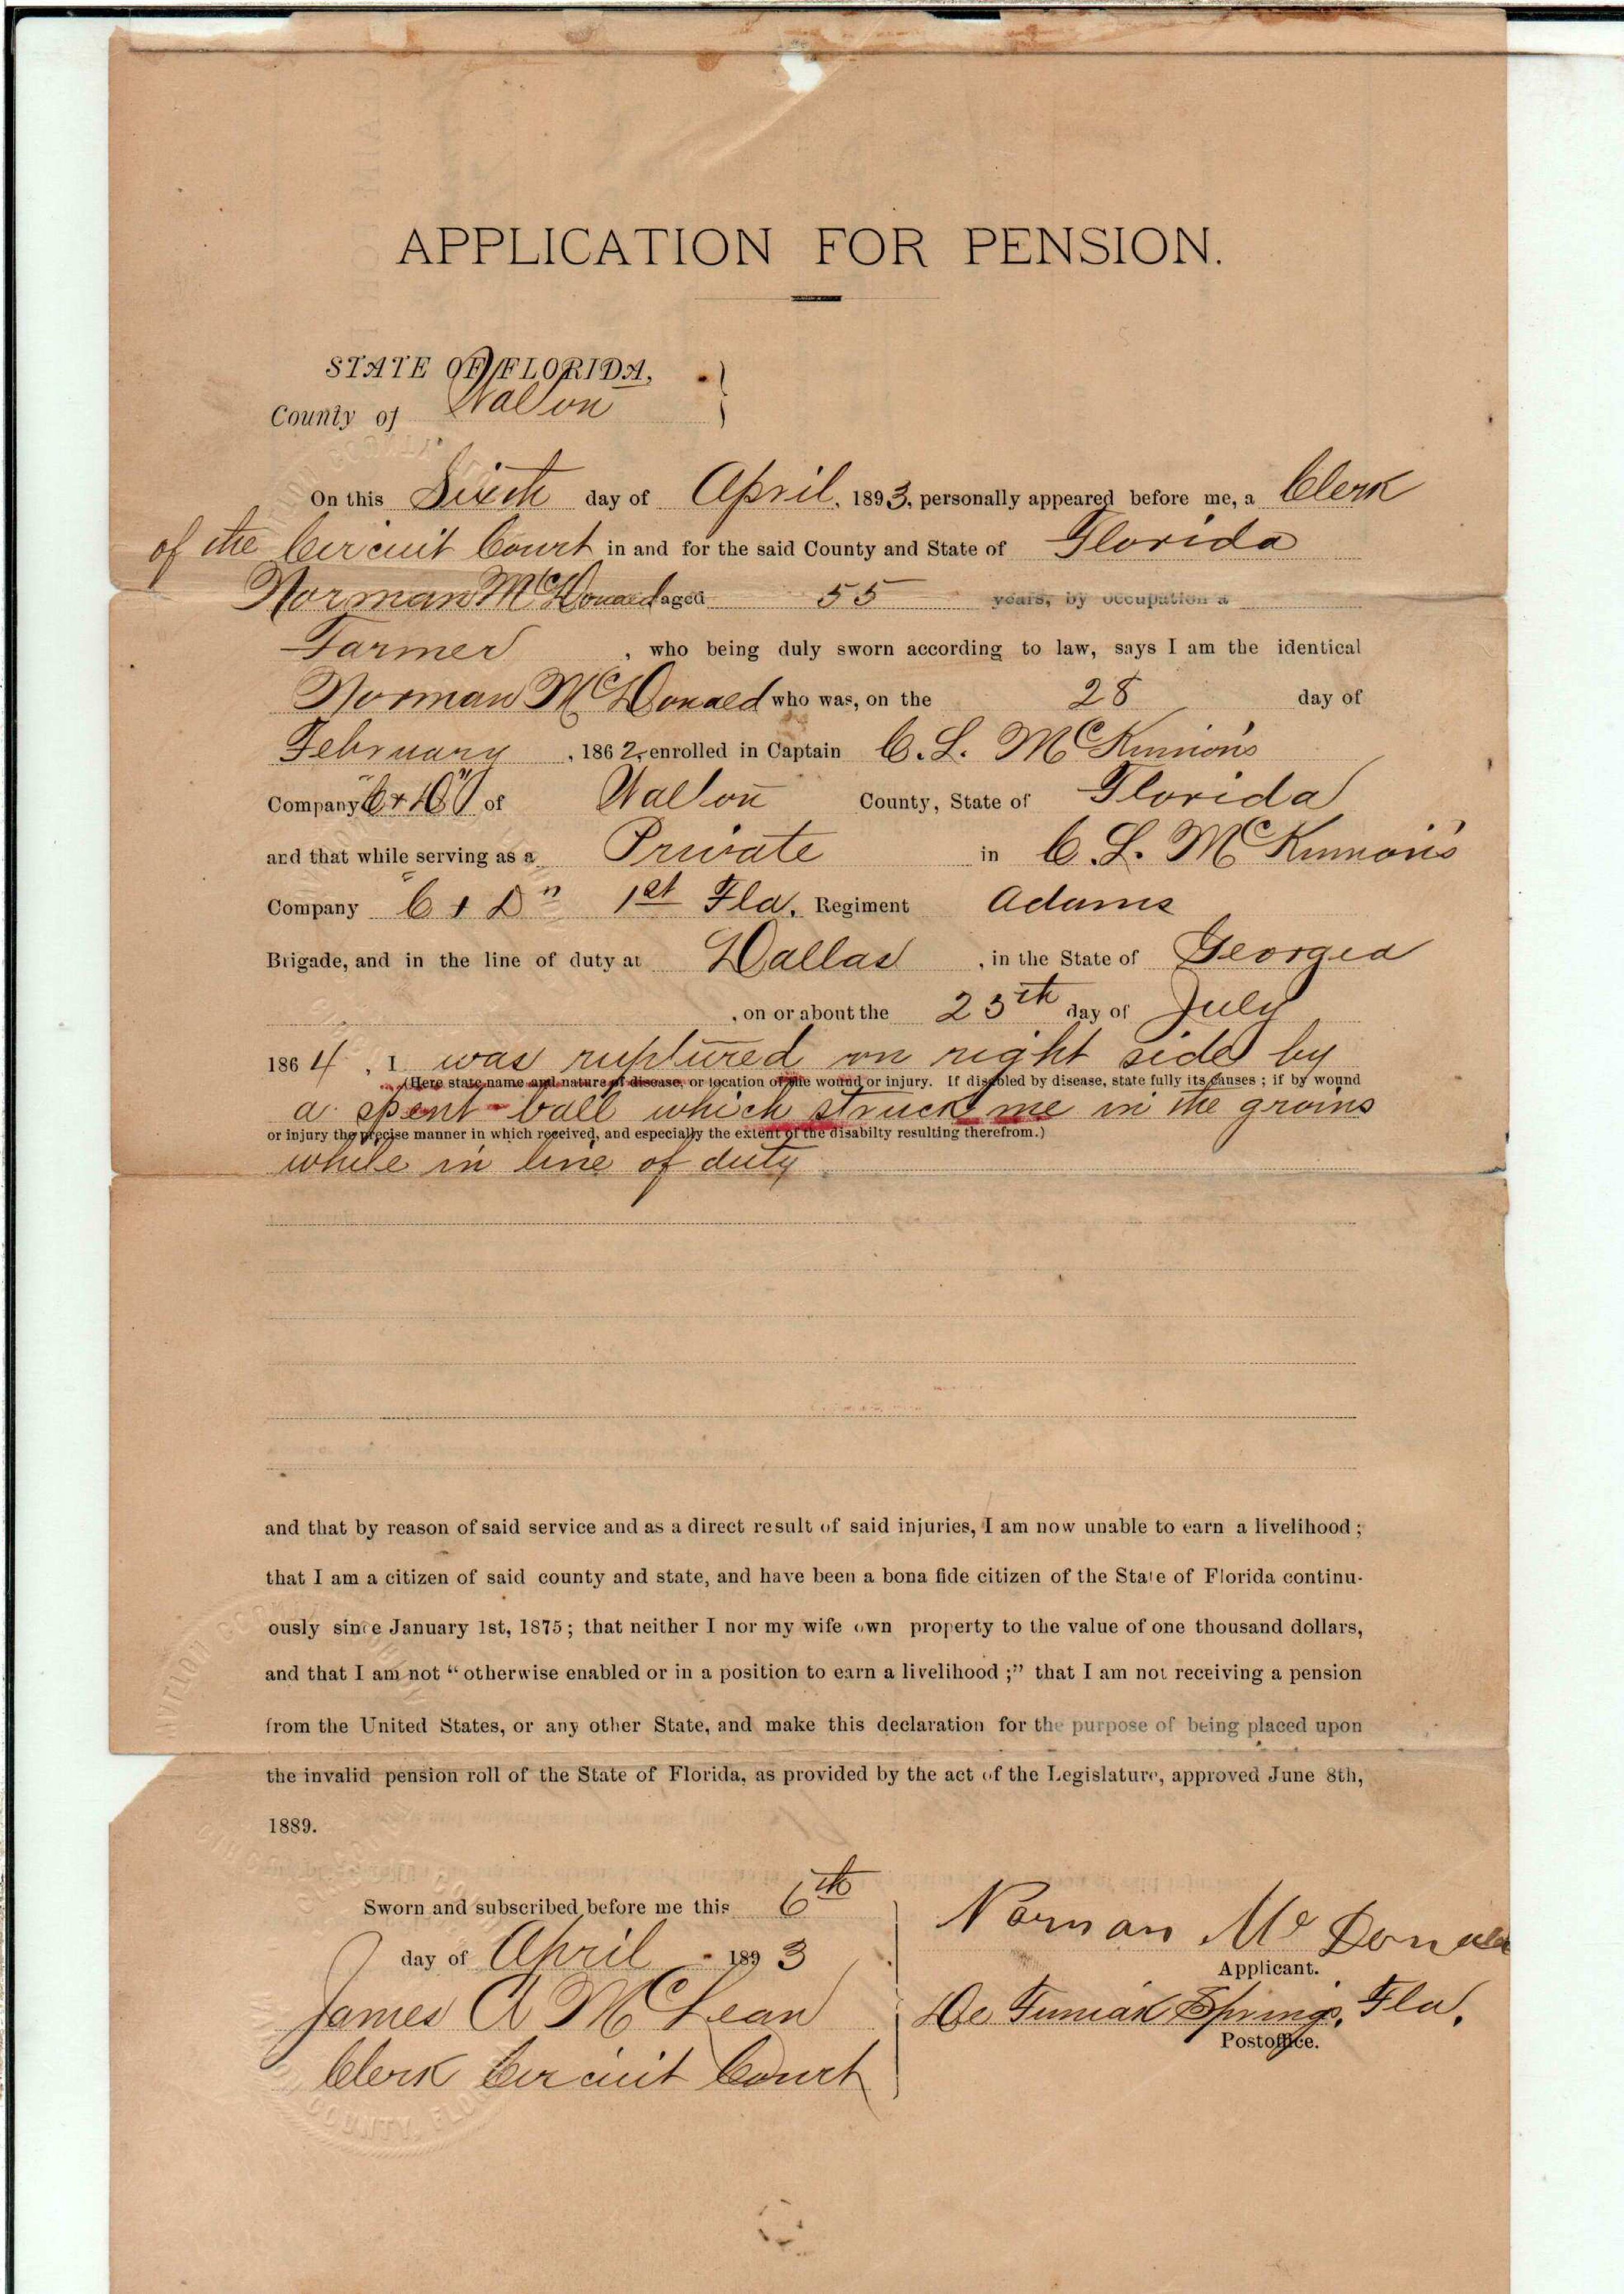 APPLICATION FOR PENSION.
STATE OF FLORIDA,
County of Walton
On this Sixth day of April, 1893, personally appeared before me, a Clerk
of the Circuit Court in and for the said County and State of Florida
Norman McDonald aged 55 years, by occupation a
Farmer, who being duly sworn according to law, says I am the identical
Norman McDonald who was, on the 28 day of
February, 1862, enrolled in Captain C. L. McKinnon's
Company "C + D" of Walton County, State of Florida
and that while serving as a Private in C. L. McKinnon's
Company "C + D" 1st Fla. Regiment Adams
Brigade, and in the line of duty at Dallas, in the State of Georgia
, on or about the 25th day of July
1864, I was ruptured on right side by
(Here state name and nature of disease, or location of the wound or injury. If disabled by disease, state fully its causes; if by wound
a spent ball which struck me in the groins
or injury the precise manner in which received, and especially the extent of the disabilty resulting therefrom.)
while in line of duty
and that by reason of said service and as a direct result of said injuries, I am now unable to earn a livelihood;
that I am a citizen of said county and state, and have been a bona fide citizen of the State of Florida continu-
ously since January 1st, 1875; that neither I nor my wife own property to the value of one thousand dollars,
and that I am not "otherwise enabled or in a position to earn a livelihood;" that I am not receiving a pension
from the United States, or any other State, and make this declaration for the purpose of being placed upon
the invalid pension roll of the State of Florida, as provided by the act of the Legislature, approved June 8th,
1889.
Sworn and subscribed before me this 6th
day of April 1893
James A McLean
Clerk Circuit Court
Norman McDonald
Applicant.
De Funiak Springs, Fla.
Postoffice.
COUNTY, FLO